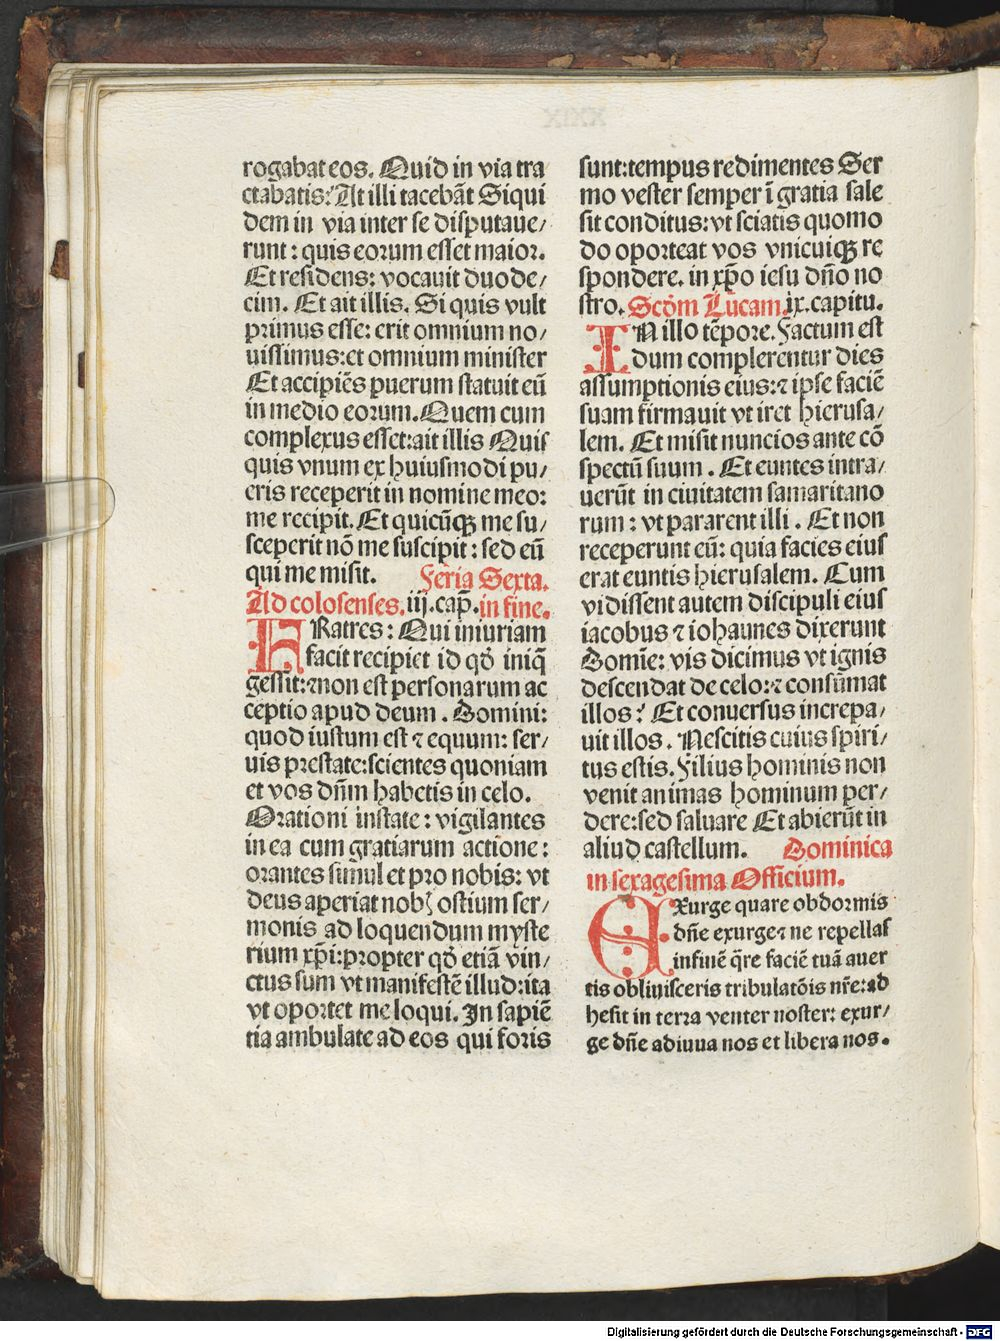 rogabat eos. Quid in via tra
ctabatis? At illi tacebāt Siqui
dem in via inter se disputaue/
runt : quis eorum esset maior.
Et residens: vocauit duode/
cim. Et ait illis. Si quis vult
primus esse: erit omnium no/
uissimus:et omnium minister
Et accipiēs puerum statuit eū
in medio eorum. Quem cum
complexus esset:ait illis Quis
quis vnum ex huiusmodi pu/
eris receperit in nomine meo:
me recipit. Et quicūqꝫ me su/
sceperit nō me suscipit : sed eū
qui me misit. Feria Sexta.
Ad colosenses. iij.cap̄. in fine.
FRatres : Qui iniuriam
facit recipiet id qd̄ iniq̄
gessit:⁊ non est personarum ac
ceptio apud deum . Domini:
quod iustum est ⁊ equum: ser/
uis prestate:scientes quoniam
et vos dn̄m habetis in celo.
Orationi instate : vigilantes
in ea cum gratiarum actione :
orantes simul et pro nobis: vt
deus aperiat nobꝭ ostium ser/
monis ad loquendum myste
rium xp̄i:propter qd̄ etiā vin/
ctus sum vt manifestē illud:ita
vt oportet me loqui. In sapiē
tia ambulate ad eos qui foris
sunt:tempus redimentes Ser
mo vester semper ī gratia sale
sit conditus:vt sciatis quomo
do oporteat vos vnicuiqꝫ re
spondere. in xp̄o iesu dn̄o no
stro. Scd̄m Lucam. ix.capitu.
IN illo tēpore. Factum est
dum complerentur dies
assumptionis eius:⁊ ipse faciē
suam firmauit vt iret hierusa/
lem. Et misit nuncios ante cō
spectū suum . Et euntes intra/
uerūt in ciuitatem samaritano
rum : vt pararent illi . Et non
receperunt eū: quia facies eius
erat euntis hierusalem. Cum
vidissent autem discipuli eius
iacobus ⁊ iohannes dixerunt
Domīe: vis dicimus vt ignis
descendat de celo:⁊ consūmat
illos? Et conuersus increpa/
uit illos . Nescitis cuius spiri/
tus estis. Filius hominis non
venit animas hominum per/
dere:sed saluare Et abierūt in
aliud castellum. Dominica
in sexagesima Officium.
EXurge quare obdormis
dn̄e exurge⁊ ne repellas
in finē q̄re faciē tuā auer
tis obliuisceris tribulatōis nr̄e:ad
hesit in terra venter noster: exur/
ge dn̄e adiuua nos et libera nos.
XXIX
Digitalisierung gefördert durch die Deutsche Forschungsgemeinschaft - DFG